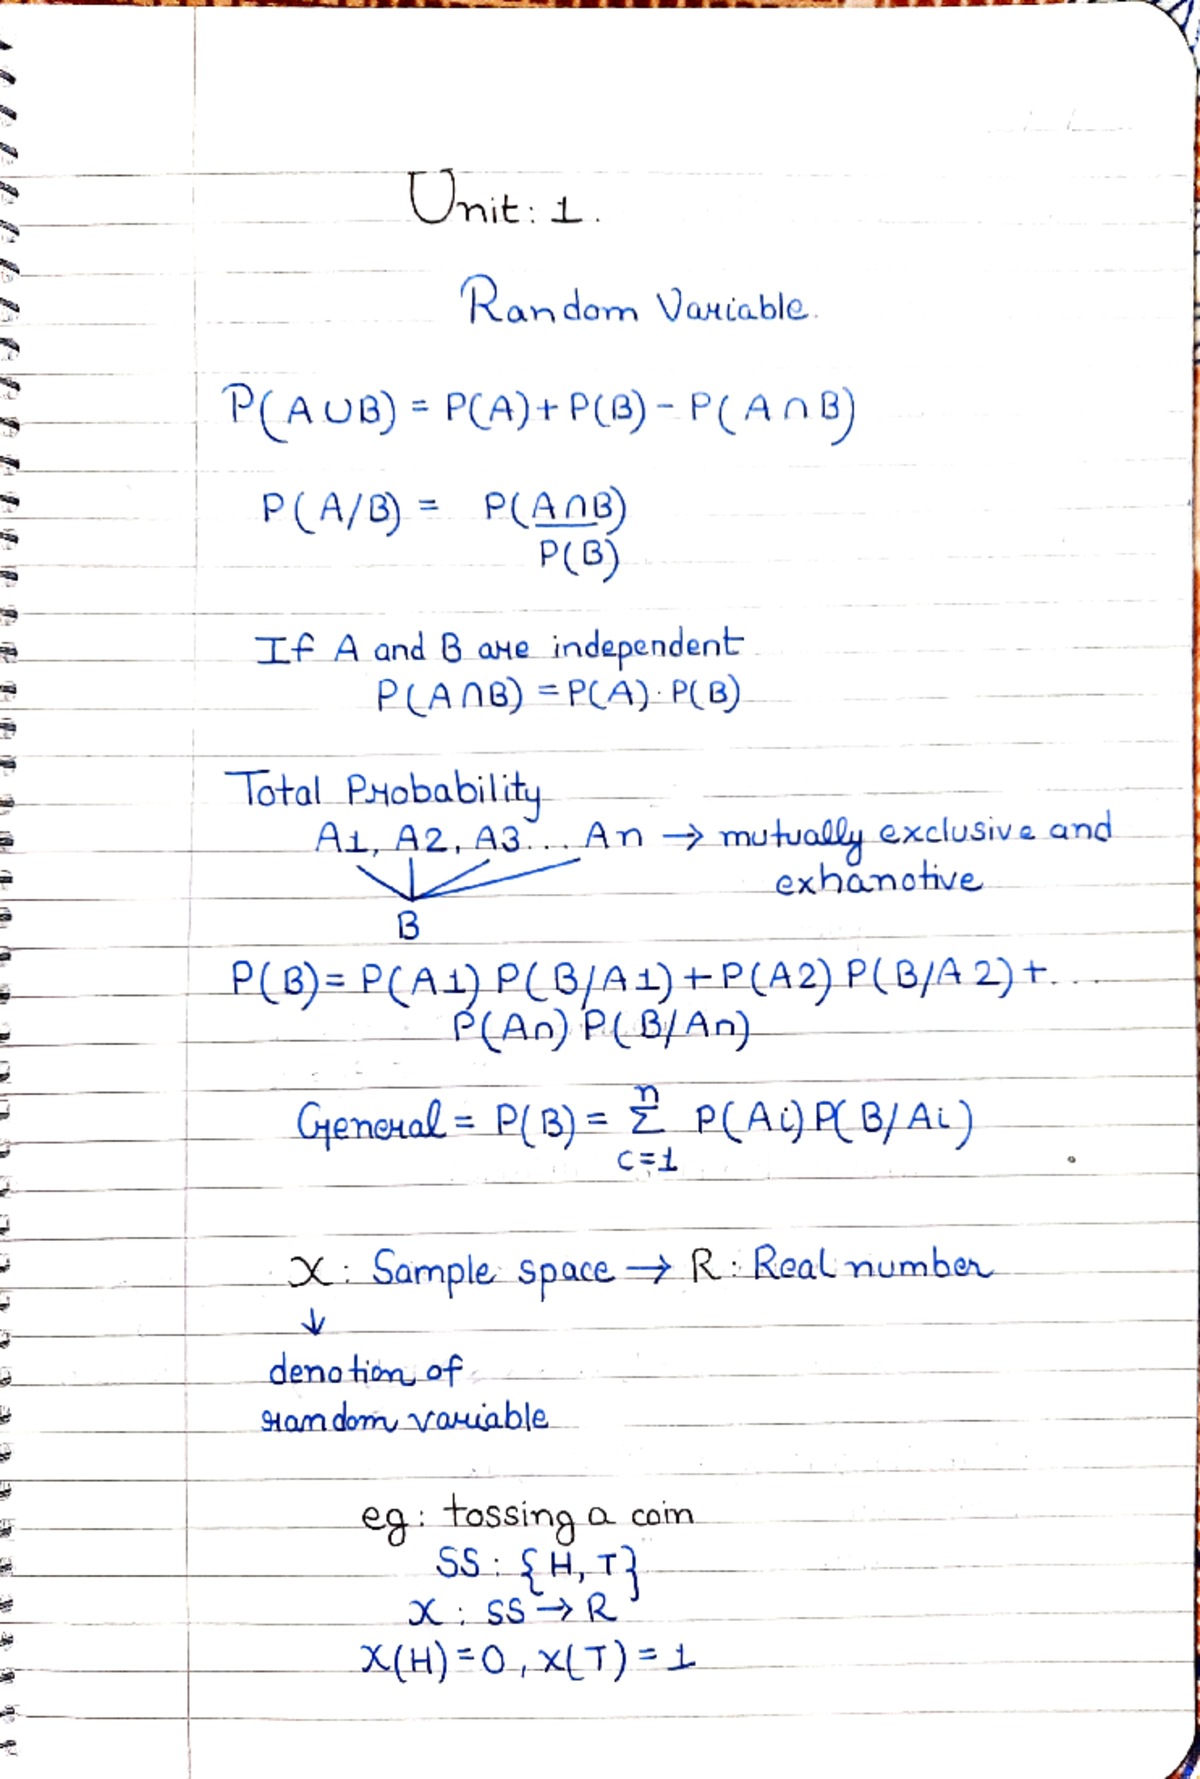 Unit: 1.
Random Variable.
P(A∪B) = P(A) + P(B) - P(A∩B)
P(A/B) = P(A∩B)
P(B)
If A and B are independent
P(A∩B) = P(A). P(B)
Total Probability
A1, A2, A3... An → mutually exclusive and
exhanotive
B
P(B) = P(A1) P(B/A1) + P(A2) P(B/A2) + ....
P(An) P(B/An)
General = P(B) = n Σ P(Ai) P(B/Ai)
c=1
X : Sample space → R : Real number
↓
denotion of
random variable
eg: tossing a coin
SS : {H, T}
X : SS → R
X(H) = 0, X(T) = 1